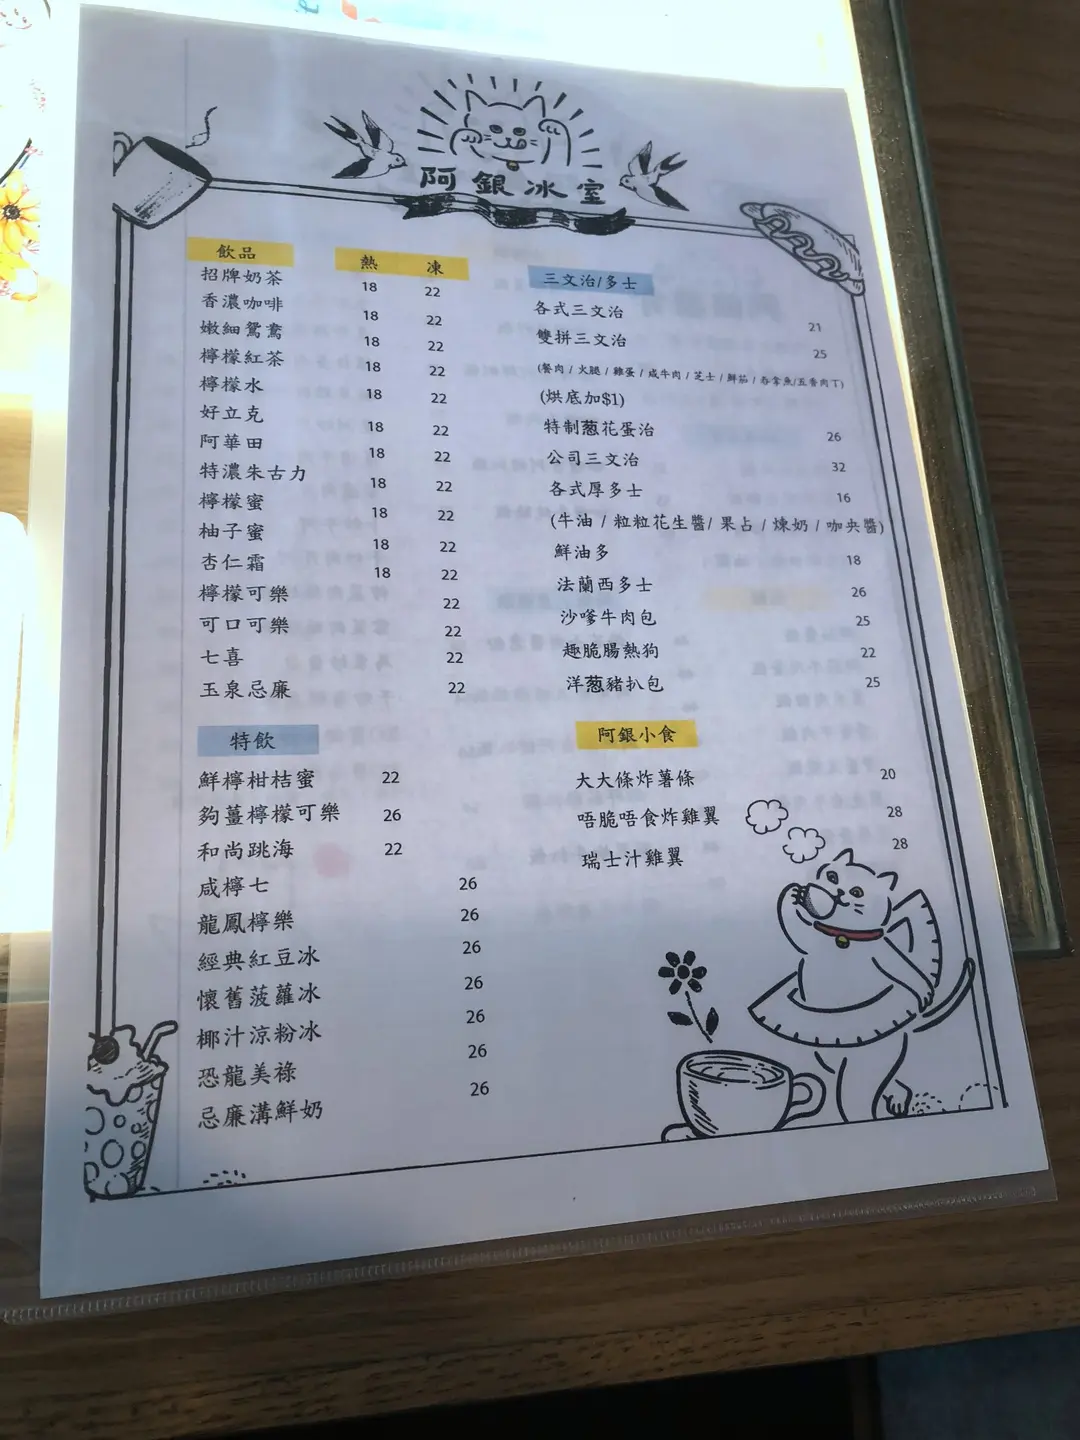 阿銀冰室
飲品 熱 凍
招牌奶茶 18 22
香濃咖啡 18 22
嫩細鴛鴦 18 22
檸檬紅茶 18 22
檸檬水 18 22
好立克 18 22
阿華田 18 22
特濃朱古力 18 22
檸檬蜜 18 22
柚子蜜 18 22
杏仁霜 18 22
檸檬可樂 22
可口可樂 22
七喜 22
玉泉忌廉 22
特飲
鮮檸柑桔蜜 22
夠薑檸檬可樂 26
和尚跳海 22
咸檸七 26
龍鳳檸樂 26
經典紅豆冰 26
懷舊菠蘿冰 26
椰汁涼粉冰 26
恐龍美祿 26
忌廉溝鮮奶 26
三文治/多士
各式三文治 21
雙拼三文治 25
(餐肉 / 火腿 / 雞蛋 / 咸牛肉 / 芝士 / 鮮茄 / 吞拿魚/五香肉丁)
(烘底加$1)
特制葱花蛋治 26
公司三文治 32
各式厚多士 16
(牛油 / 粒粒花生醬/ 果占 / 煉奶 / 咖央醬)
鮮油多 18
法蘭西多士 26
沙嗲牛肉包 25
趣脆腸熱狗 22
洋葱豬扒包 25
阿銀小食
大大條炸薯條 20
唔脆唔食炸雞翼 28
瑞士汁雞翼 28